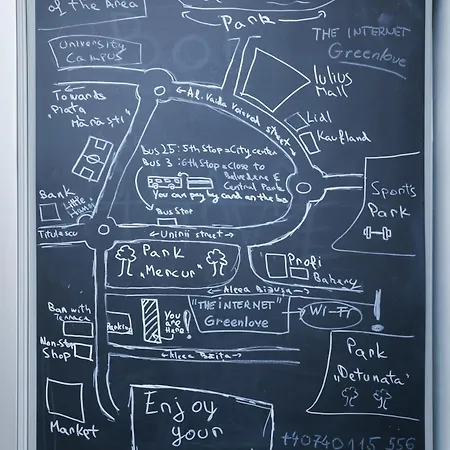 of the Area
Park
THE INTERNET
Greenlove
University
Campus
Iulius
Mall
Towards
"Piata
Mărăști"
Al. Vaida Voievod street
Lidl
Kaufland
Bus 25: 5th Stop = City center
Bus 3 : 6th Stop = Close to
Belvedere &
Central Park
You can pay by card on the bus
Bus Stop
Bank
Little
Hanoi
Sports
Park
Titulescu
Unirii street
Park
"Mercur"
Profi
Bakery
Aleea Bizusa
"THE INTERNET"
Greenlove
Wi-Fi
Bar with
Terrace
Parking
You
are
Here!
Non Stop
Shop
Aleea Băița
Park
"Detunata"
Market
Enjoy
your
+40740 115 556